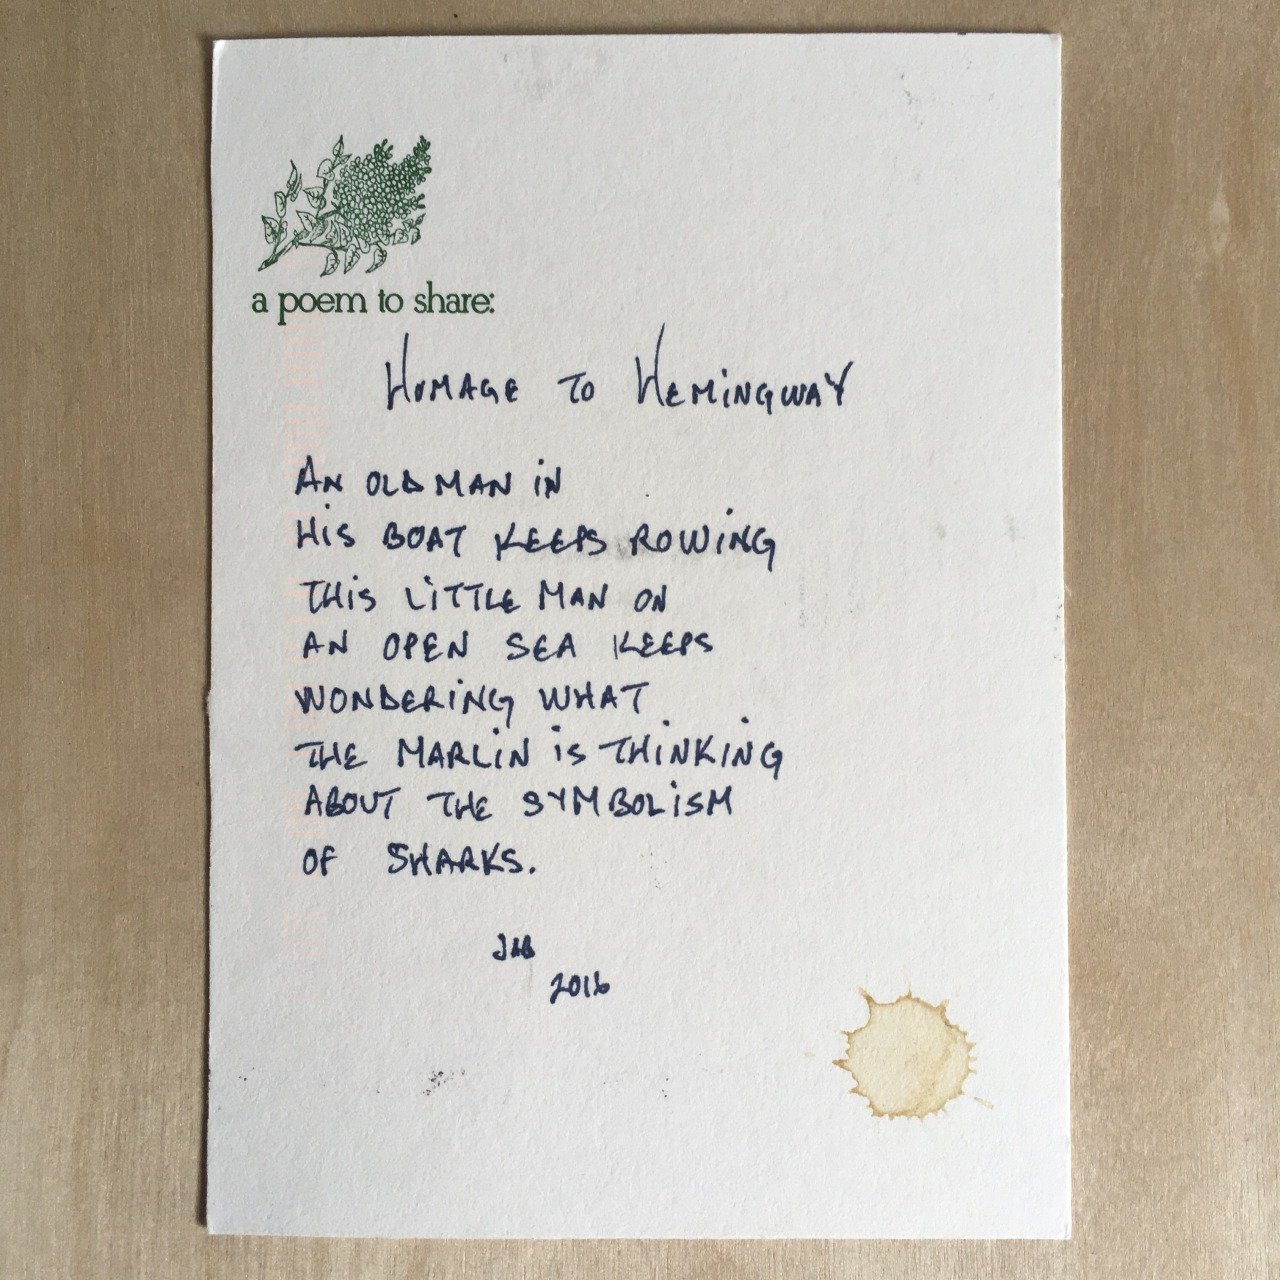 a poem to share:
HOMAGE TO HEMINGWAY
AN OLD MAN IN
HIS BOAT KEEPS ROWING
THIS LITTLE MAN ON
AN OPEN SEA KEEPS
WONDERING WHAT
THE MARLIN IS THINKING
ABOUT THE SYMBOLISM
OF SHARKS.
2016